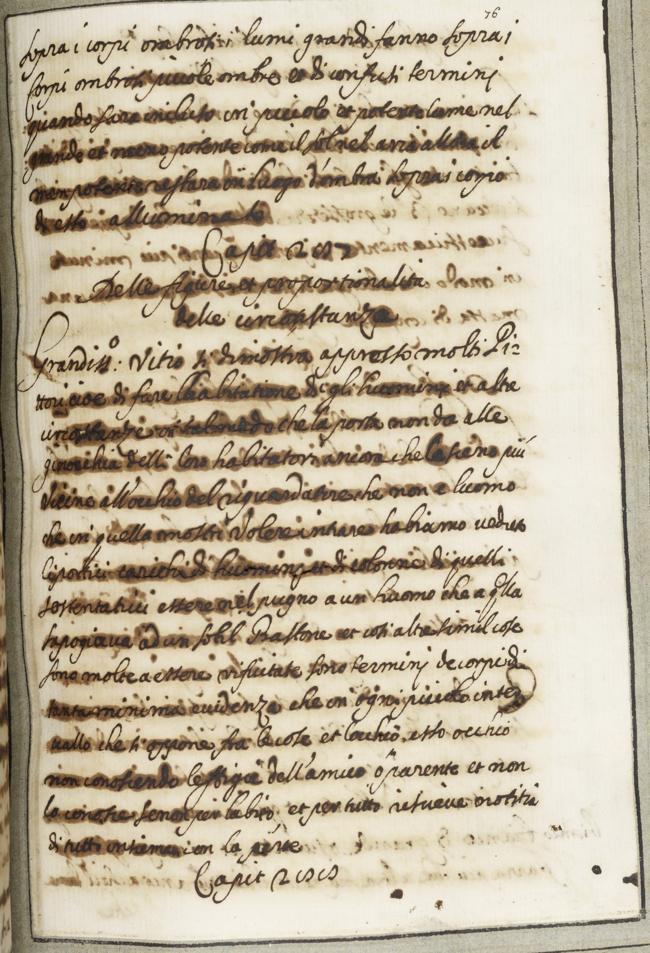 76
sopra i corpi ombrosi i lumi grandi fanno sopra i
corpi ombrosi piccole ombre et di confusi termini
quando sara incluso un piccolo et potente lume nel
grande et meno potente come il sol nel aria allora il
men potente restara in luogo d'ombra sopra i corpi
da esso alluminato
Capit
Delle figure et proportionalita
delle circonstanze
Grandiss.o: vitio si dimostra appresso molti Pi-
ttori cioe di fare l'habitatione de gli huomini et altre
circonstanze in tal modo che la porta non da alle
ginocchia delli loro habitatori ancora che la sieno più
vicine all'occhio del riguardatore che non e l'uomo
che in quella mostri volere intrare habiamo veduto
li portici carichi di huomini et di colonne di quelli
sostentatrici essere nel pugno a un huomo che a qlla
sapogiava ad un sotil Bastone et cosi altre simil cose
sono molte a essere rifiutate sono termini de corpi di
tanta minima evidenza che in ogni piccolo inter
vallo che si oppone fra le cose et l'occhio esso occhio
non conoscendo l'effigie dell'amico o parente et non
lo conosce senon per l'abito et per tutto riceve notitia
di tutto insieme con la parte
Capit